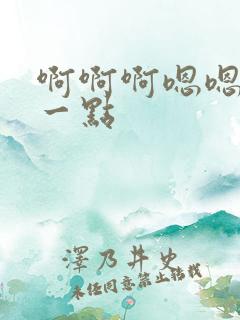 啊啊啊嗯嗯
一點
澤乃井史
未經同意禁止轉載